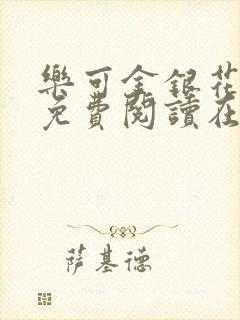 樂可金銀花
免費閱讀在
薩基德